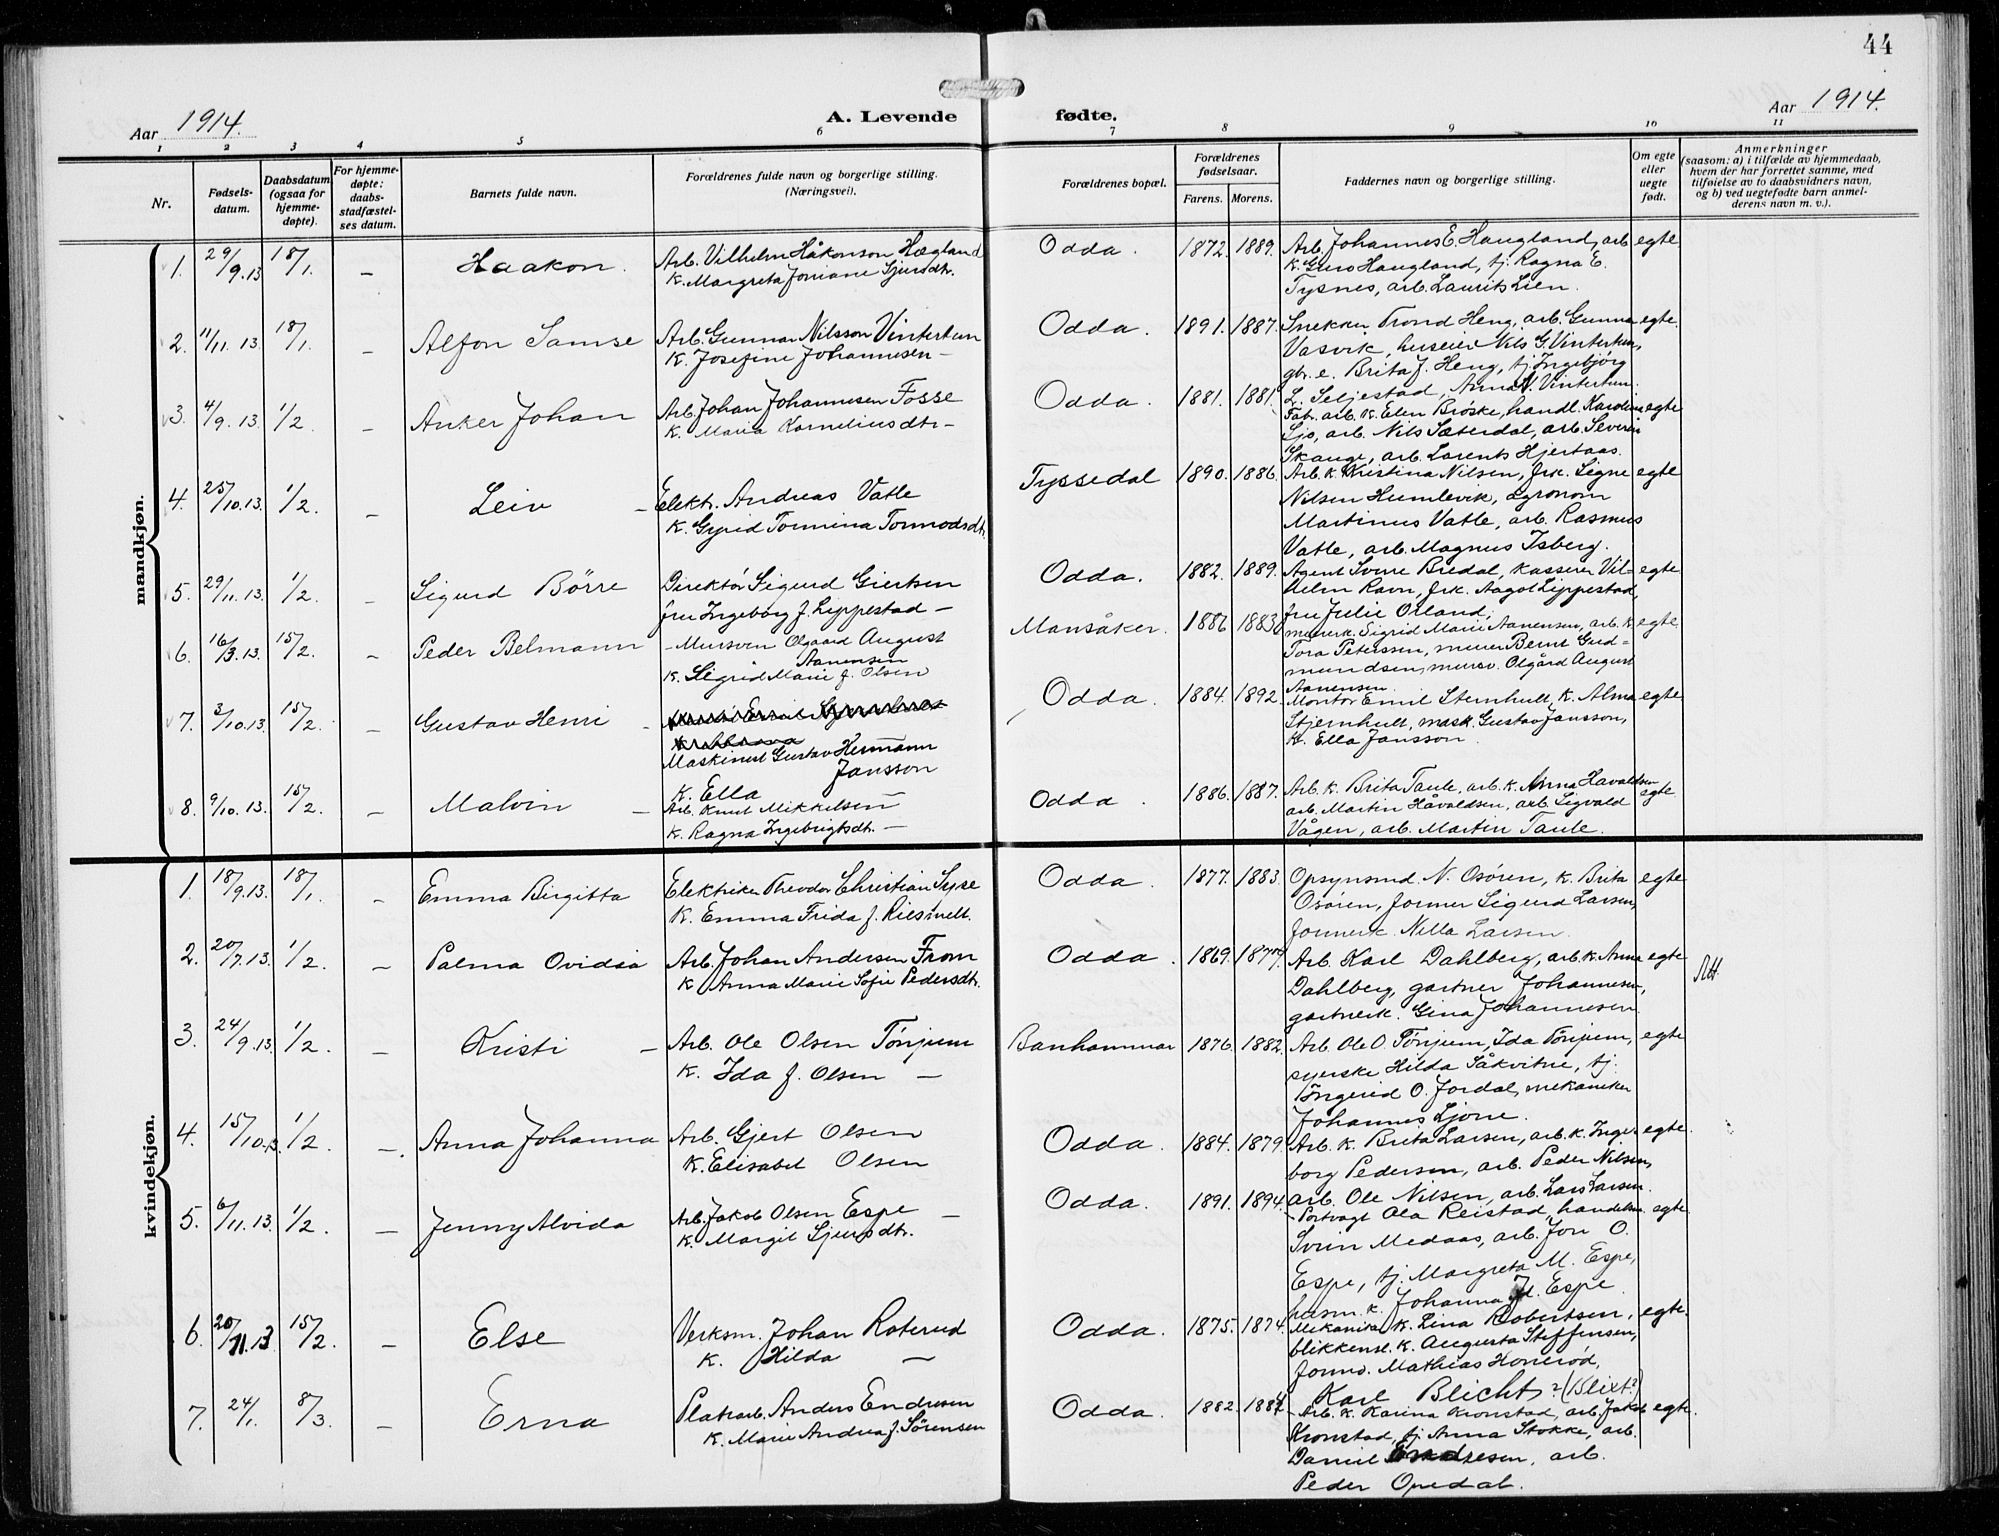 44
Aar 1914.
A. Levende fødte.
Aar 1914.
1 2 3 4 5 6 7 8 9 10 11
Nr.
Fødsels-
datum.
Daabsdatum
(ogsaa for
hjemme-
døpte).
For hjemme-
døpte:
daabs-
stadfæstel-
ses datum.
Barnets fulde navn.
Forældrenes fulde navn og borgerlige stilling.
(Næringsvei).
Forældrenes bopæl.
Forældrenes
fødselsaar.
Farens. Morens.
Faddernes navn og borgerlige stilling.
Om egte
eller
uegte
født.
Anmerkninger
(saasom: a) i tilfælde av hjemmedaab,
hvem der har forrettet samme, med
tilføielse av to daabsvidners navn,
og b) ved uegtefødte barn anmel-
derens navn m. v.).
mandkjøn.
1. 29/9.13 18/1. – Haakon. Arb. Vilhelm Håkonson Hægland Odda. 1872. 1889. Arb. Johannes E. Haugland, arb. egte
K. Margreta Joniane Sjursdtr. K. Guro Haugland, tj. Ragna E.
Tysnes, arb. Laurits Lien.
2. 11/11.13 18/1. – Alfon Samse Arb. Gunnar Nilsson Vintertun Odda. 1891. 1887. Snekker Trond Heng, arb. Gunna egte.
K. Josefine Johannesen – Vasvik, huseier Nils G. Vintertun,
gbr. e. Brita J. Heng, tj. Ingebjørg
L. Seljestad, Anna N. Vintertun.
3. 4/9.13 1/2. – Anker Johan Arb. Johan Johannesen Fosse Odda. 1881. 1881. Fab. arb. K. Elen Brøske, handl. Karoline egte
K. Maria Korneliusdtr – Sjo, arb. Nils Sæterdal, arb. Severin
Skauge, arb. Larents Hjertaas.
4. 25/10.13. 1/2. – Leiv – Elektr. Andreas Vatle Tyssedal 1890. 1886. Arb. K. Kristina Nilsen, frk. Signe egte
K. Gyrid Tormina Tormodsdtr. Nilsen Humlevik, agronom
Martinus Vatle, arb. Rasmus
Vatle, arb. Magnus Isberg.
5. 29/11.13. 1/2. – Sigurd Børre Direktør Sigurd Giertsen Odda. 1882. 1889. Agent Sverre Bredal, kasserer Vil- egte
fru Ingeborg f. Lippestad – helm Ravn, frk. Aagot Lippestad,
fru Julie Orland,
6. 16/3.13. 15/2. – Peder Belmann – Mursven Olgaard August Mansåker. 1886 1883 murerk. Sigrid Marie Aanensen, arb. K. egte
Aanensen Tora Peterssen, murer Bernt Gud-
K. Sigrid Marie f. Olsen mundsen, mursv. Olgård August
Aanensen.
7. 3/10.13. 15/2. – Gustav Henri – Odda. 1884. 1892. Montør Emil Sternhult, K. Alma egte
Stjernhult, mask. Gustav Jansson,
Maskinist Gustav Hermann K. Ella Jansson.
Jansson
K. Ella
8. 9/10.13. 15/2. – Malvin – Arb. Knut Mikkelsen – Odda. 1886. 1887. Arb. K. Brita Taule, arb. K. Anna Havaldsen egte
K. Ragna Ingebrigtsdt. – arb. Martin Håvaldsen, arb. Sigvald
Vågen, arb. Martin Taule.
kvindekjøn.
1. 18/9.13. 18/1. – Emma Birgitta Elektriker Theodor Christian Syse Odda. 1877. 1883. Opsynsmd. N. Osøren, K. Brita egte
K. Emma Frida f. Riesmelt. Osøren, former Sigurd Larsen,
formerk. Nilla Larsen.
2. 20/7.13. 1/2. – Palma Ovidia Arb. Johan Andersen From Odda. 1869. 1877. Arb. Karl Dahlberg, arb. K. Anna egte
K Anna Marie Sofie Pedersdtr. Dahlberg, gartner Johannesen,
gartnerk. Gina Johannesen
3. 24/9.13. 1/2. – Kristi – Arb. Ole Olsen Tønjum Banhammar 1876. 1882. Arb. Ole O. Tønjum, Ida Tønjum, egte
K. Ida f. Olsen – syerske Hilda Såkvitne, tj.
Ingerid O. Jordal, mekaniker
Johannes Ljone.
4. 15/10.13. 1/2. –. Anna Johanna Arb. Gjert Olsen Odda. 1884. 1879. Arb. K. Brita Larsen, arb. K. Inge- egte.
K. Elisabet Olsen borg Pedersen, arb. Peder Nilsen,
arb. Ole Nilsen, arb. Lars Larsen.
5. 6/11.13. 1/2. – Jenny Alvida Arb. Jakob Olsen Espe – Odda. 1891. 1894. – Portvagt Ola Reistad, handelsm. egte.
K. Margit Sjursdtr. Svein Medaas, arb. Jon O.
Espe, tj. Margreta M. Espe,
husm. K. Johanna J. Espe
6. 20/11.13 15/2. – Else Verksm. Johan Roterud Odda. 1875. 1874. Mekaniker K. Lina Robertsen, egte.
K. Hilda – blikkensl. K. Augusta Steffensen,
formd. Mathias Honerød,
Karl Blicht? (Blixt?)
7. 24/1. 8/3. – Erna Platarb. Anders Endresen Odda. 1882. 1884 – Arb. K. Karina Kronstad, arb. Jakob egte.
K. Marie Andrea f. Sørensen Kronstad, tj. Anna Stokke, arb.
Daniel Endresen, arb.
Peder Opedal.